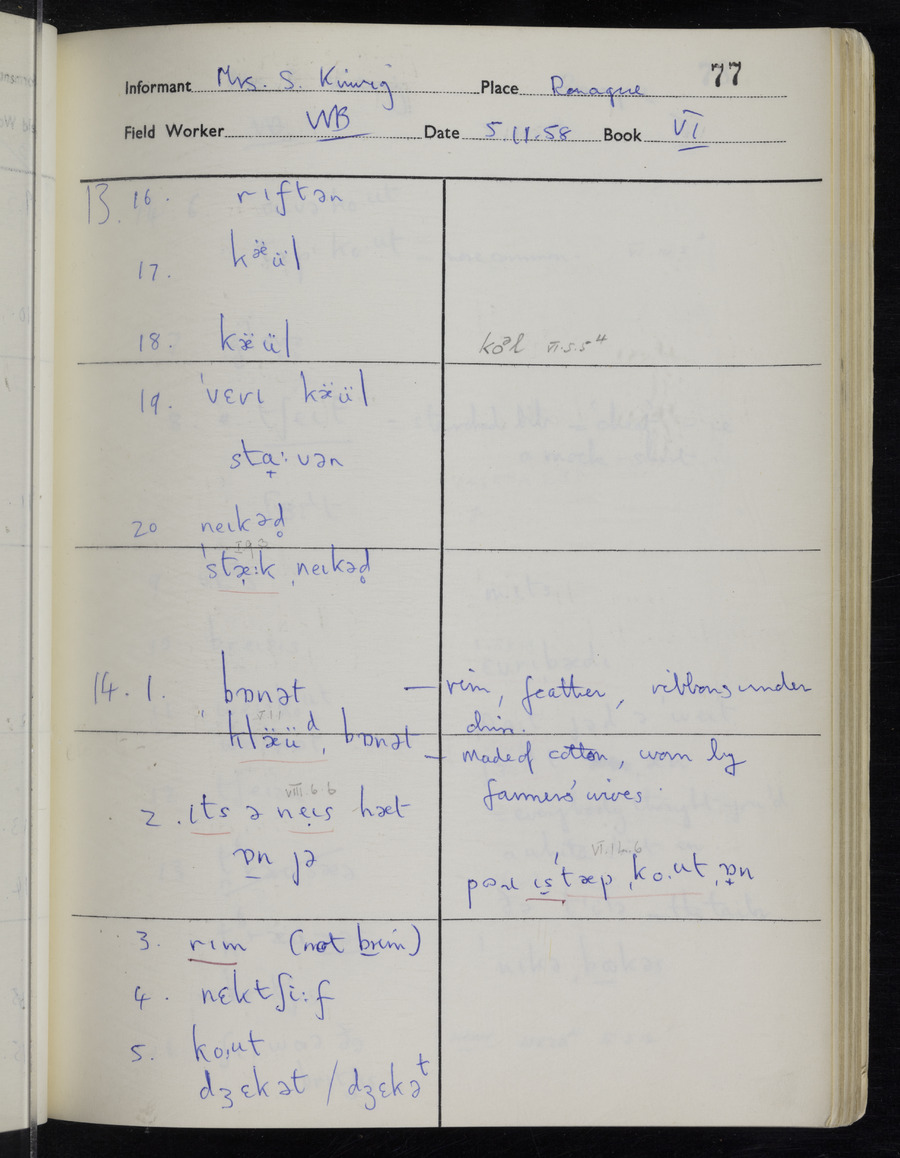 77
Informant Mrs. S. Kinvig Place Ronague
Field Worker WB Date 5.11.58 Book VI
13. 16. rɪftən
17. kæ̈ül
18. kæ̈ül kɔᵊl VI.5.5⁴
19. ˈvɛrɪ kæ̈ül
sta̟ːvən
20 neɪkəd̥
ˈstæ̣ːk ˌneɪkəd̥
14. 1. bɒnət — rim, feather, ribbons under
chin.
klæ̈üᵈ, bɒnət — made of cotton, worn by
farmers' wives.
VIII.6.6
2. ɪts ə neɪs hæt
ɒn jə
VI.14.6
ɪs ˈtæp ˌkoːut ˌɒ̟n
3. rɪm (not brim)
4. nɛktʃiːf
5. koːut
dʒɛkət / dʒɛkəᵗ